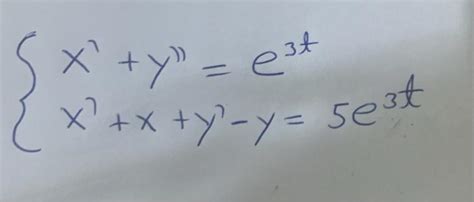 x' + y'' = e^{3t}
x' + x + y' - y = 5e^{3t}